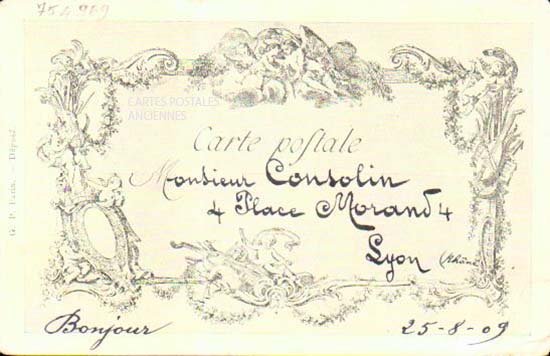 754909
CARTES POSTALES
ANCIENNES
Carte postale
Monsieur Consolin
4 Place Morand 4
Lyon (Rhône
Bonjour
25-8-09
G. P. Paris. — Déposé.